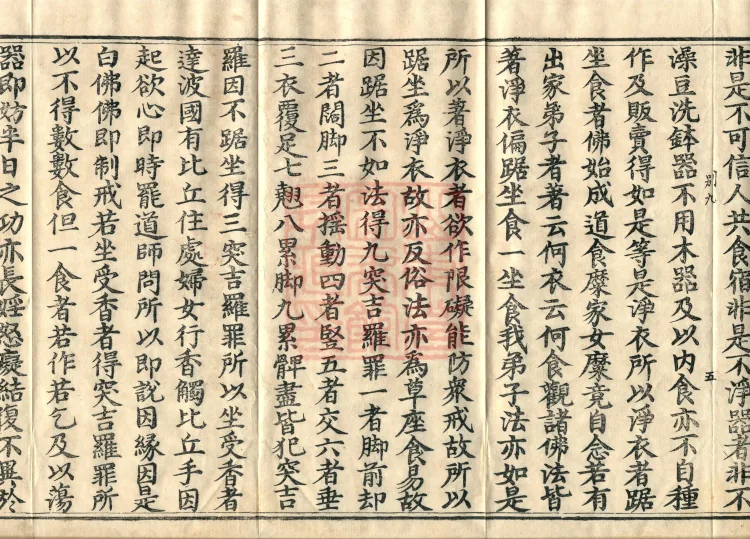 非是不可信人共食宿非是不淨器者非不
澡豆洗鉢器不用木器及以内食亦不自種
作及販賣得如是等是淨衣所以淨衣者踞
坐食者佛始成道食糜家女糜竟自念若有
出家弟子者著云何衣云何食觀諸佛法皆
著淨衣偏踞坐食一坐食我弟子法亦如是
所以著淨衣者欲作限礙能防衆戒故所以
踞坐爲淨衣故亦反俗法亦爲草座食易故
因踞坐不如法得九突吉羅罪一者脚前却
二者闊脚三者揺動四者竪五者交六者垂
三衣覆足七翹八累脚九累髀盡皆犯突吉
羅因不踞坐得三突吉羅罪所以坐受香者
達波國有比丘住處婦女行香觸比丘手因
起欲心即時罷道師問所以即說因緣因是
白佛佛即制戒若坐受香者得突吉羅罪所
以不得數數食但一食者若作若乞及以蕩
器即妨半日之功亦長婬怒癡結復不異於
别九
五